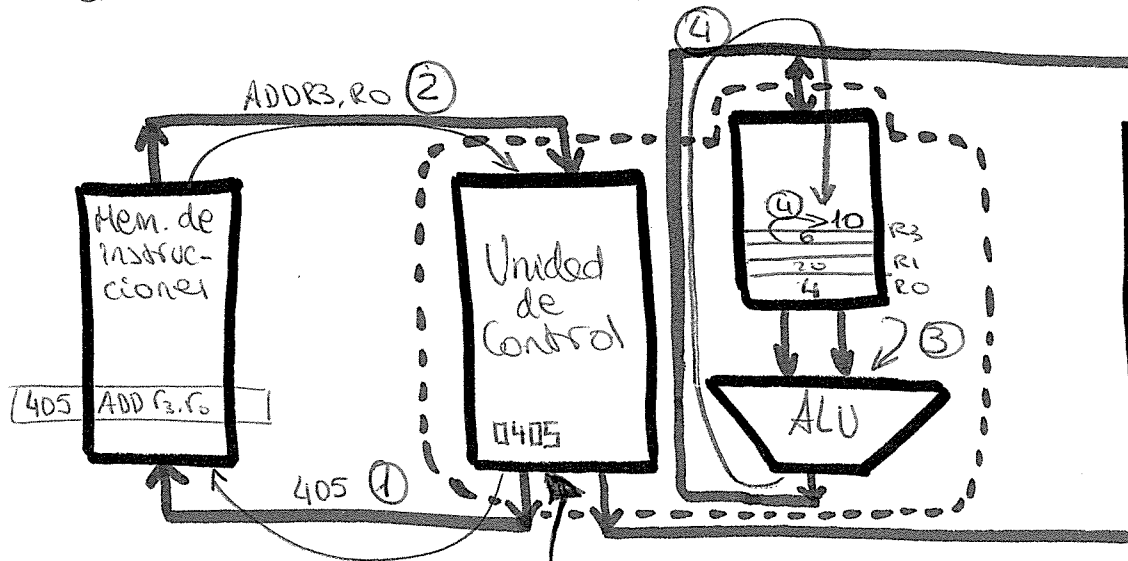 ④
ADDR3,R0 ②
Mem. de
instruc-
ciones
405 ADD r3,r0
405 ①
Unidad
de
Control
0405
④ 10
6 R3
20 R1
4 R0
③
ALU